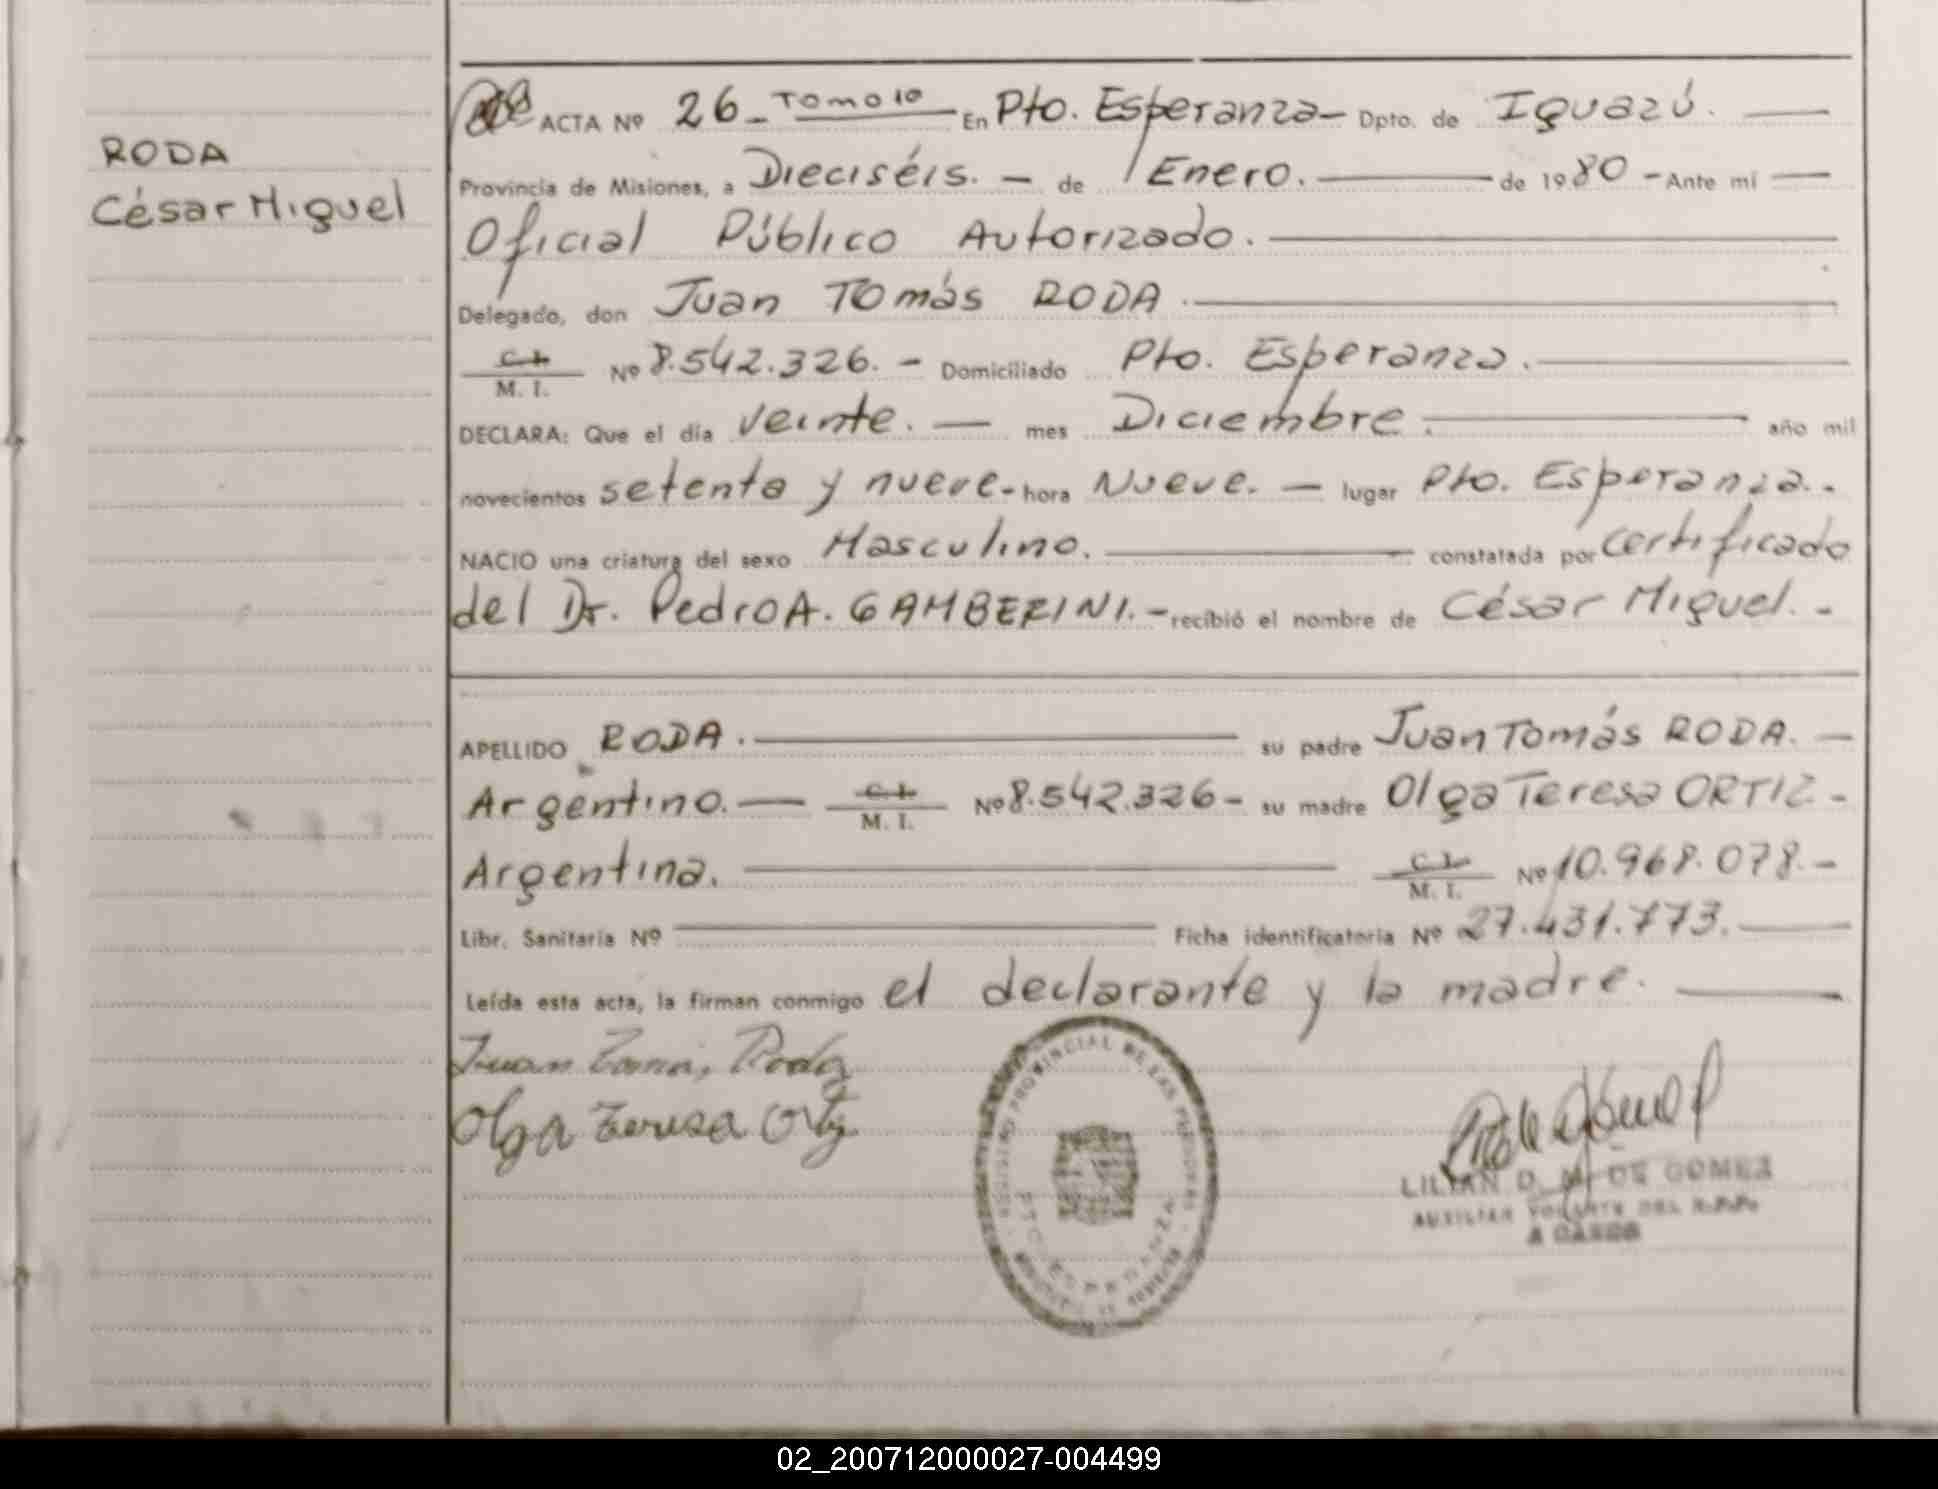 RODA
César Miguel
ACTA Nº 26 - Tomo 1º En Pto. Esperanza - Dpto. de Iguazú.
Provincia de Misiones, a Dieciséis. - de Enero. de 1980 - Ante mí
Oficial Público Autorizado.
Delegado, don Juan Tomás RODA.
C.I. M. I. Nº 8.542.326. - Domiciliado Pto. Esperanza.
DECLARA: Que el día veinte. - mes Diciembre. año mil
novecientos setenta y nueve. - hora Nueve. - lugar Pto. Esperanza. -
NACIO una criatura del sexo Masculino. constatada por certificado
del Dr. Pedro A. GAMBERINI. - recibió el nombre de César Miguel. -
APELLIDO RODA. su padre Juan Tomás RODA. -
Argentino. - C.I. M. I. Nº 8.542.326 - su madre Olga Teresa ORTIZ -
Argentina. C.I. M. I. Nº 10.968.078. -
Libr. Sanitaria Nº Ficha identificatoria Nº 27.431.773.
Leída esta acta, la firman conmigo el declarante y la madre.
Juan Tomás Roda
Olga Teresa Ortiz
REGISTRO PROVINCIAL DE LAS PERSONAS
PTO. ESPERANZA
LILIAN D. M. DE GOMEZ
AUXILIAR VOLANTE DEL R.P.P.
A CARGO
02_200712000027-004499